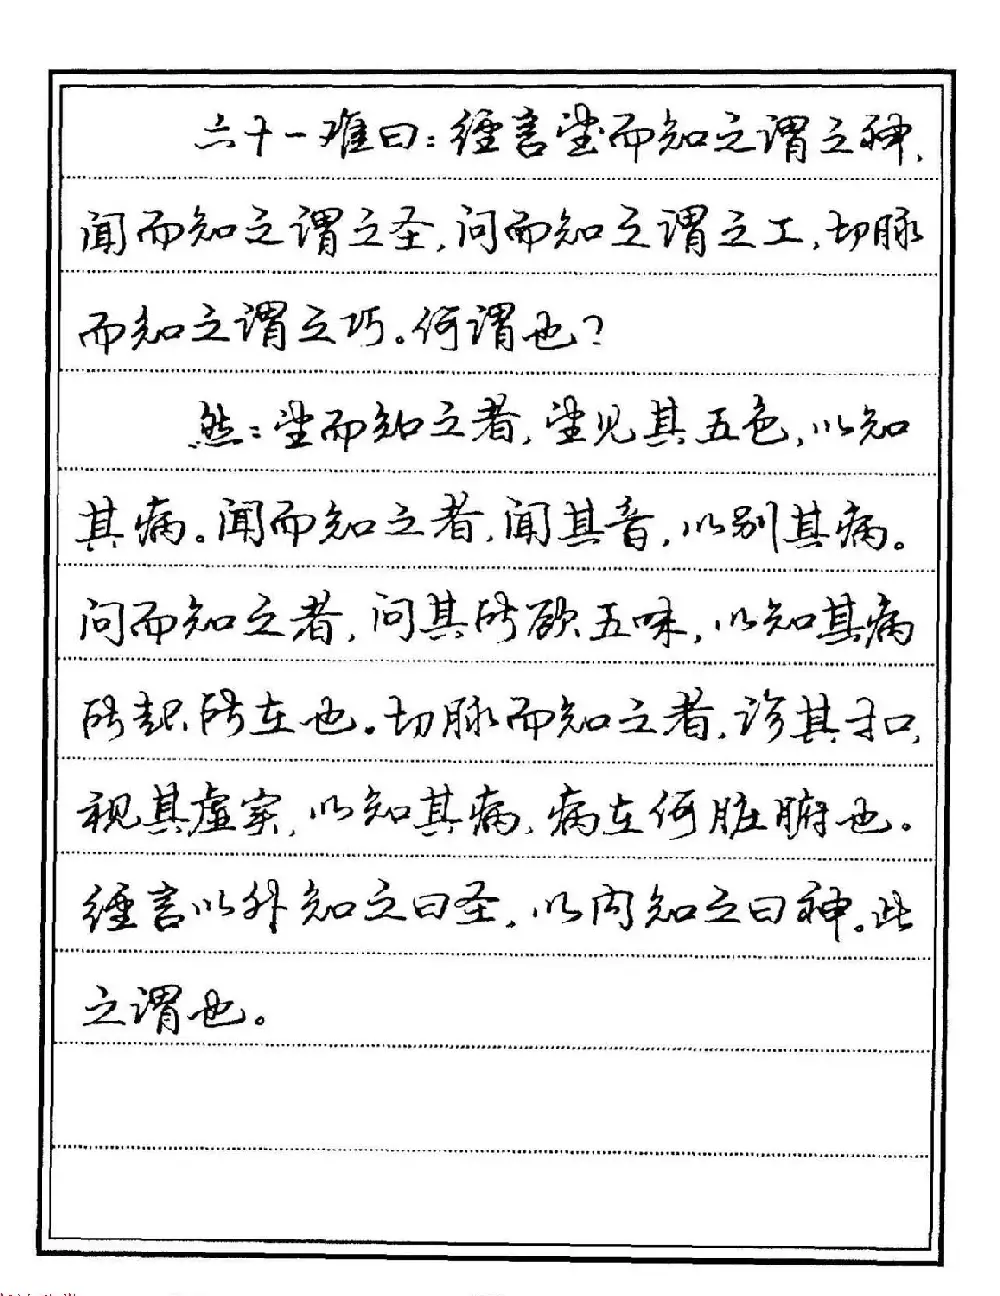 六十一难曰：经言望而知之谓之神，
闻而知之谓之圣，问而知之谓之工，切脉
而知之谓之巧。何谓也？
然：望而知之者，望见其五色，以知
其病。闻而知之者，闻其音，以别其病。
问而知之者，问其所欲五味，以知其病
所起所在也。切脉而知之者，诊其寸口，
视其虚实，以知其病，病在何脏腑也。
经言以外知之曰圣，以内知之曰神。此
之谓也。